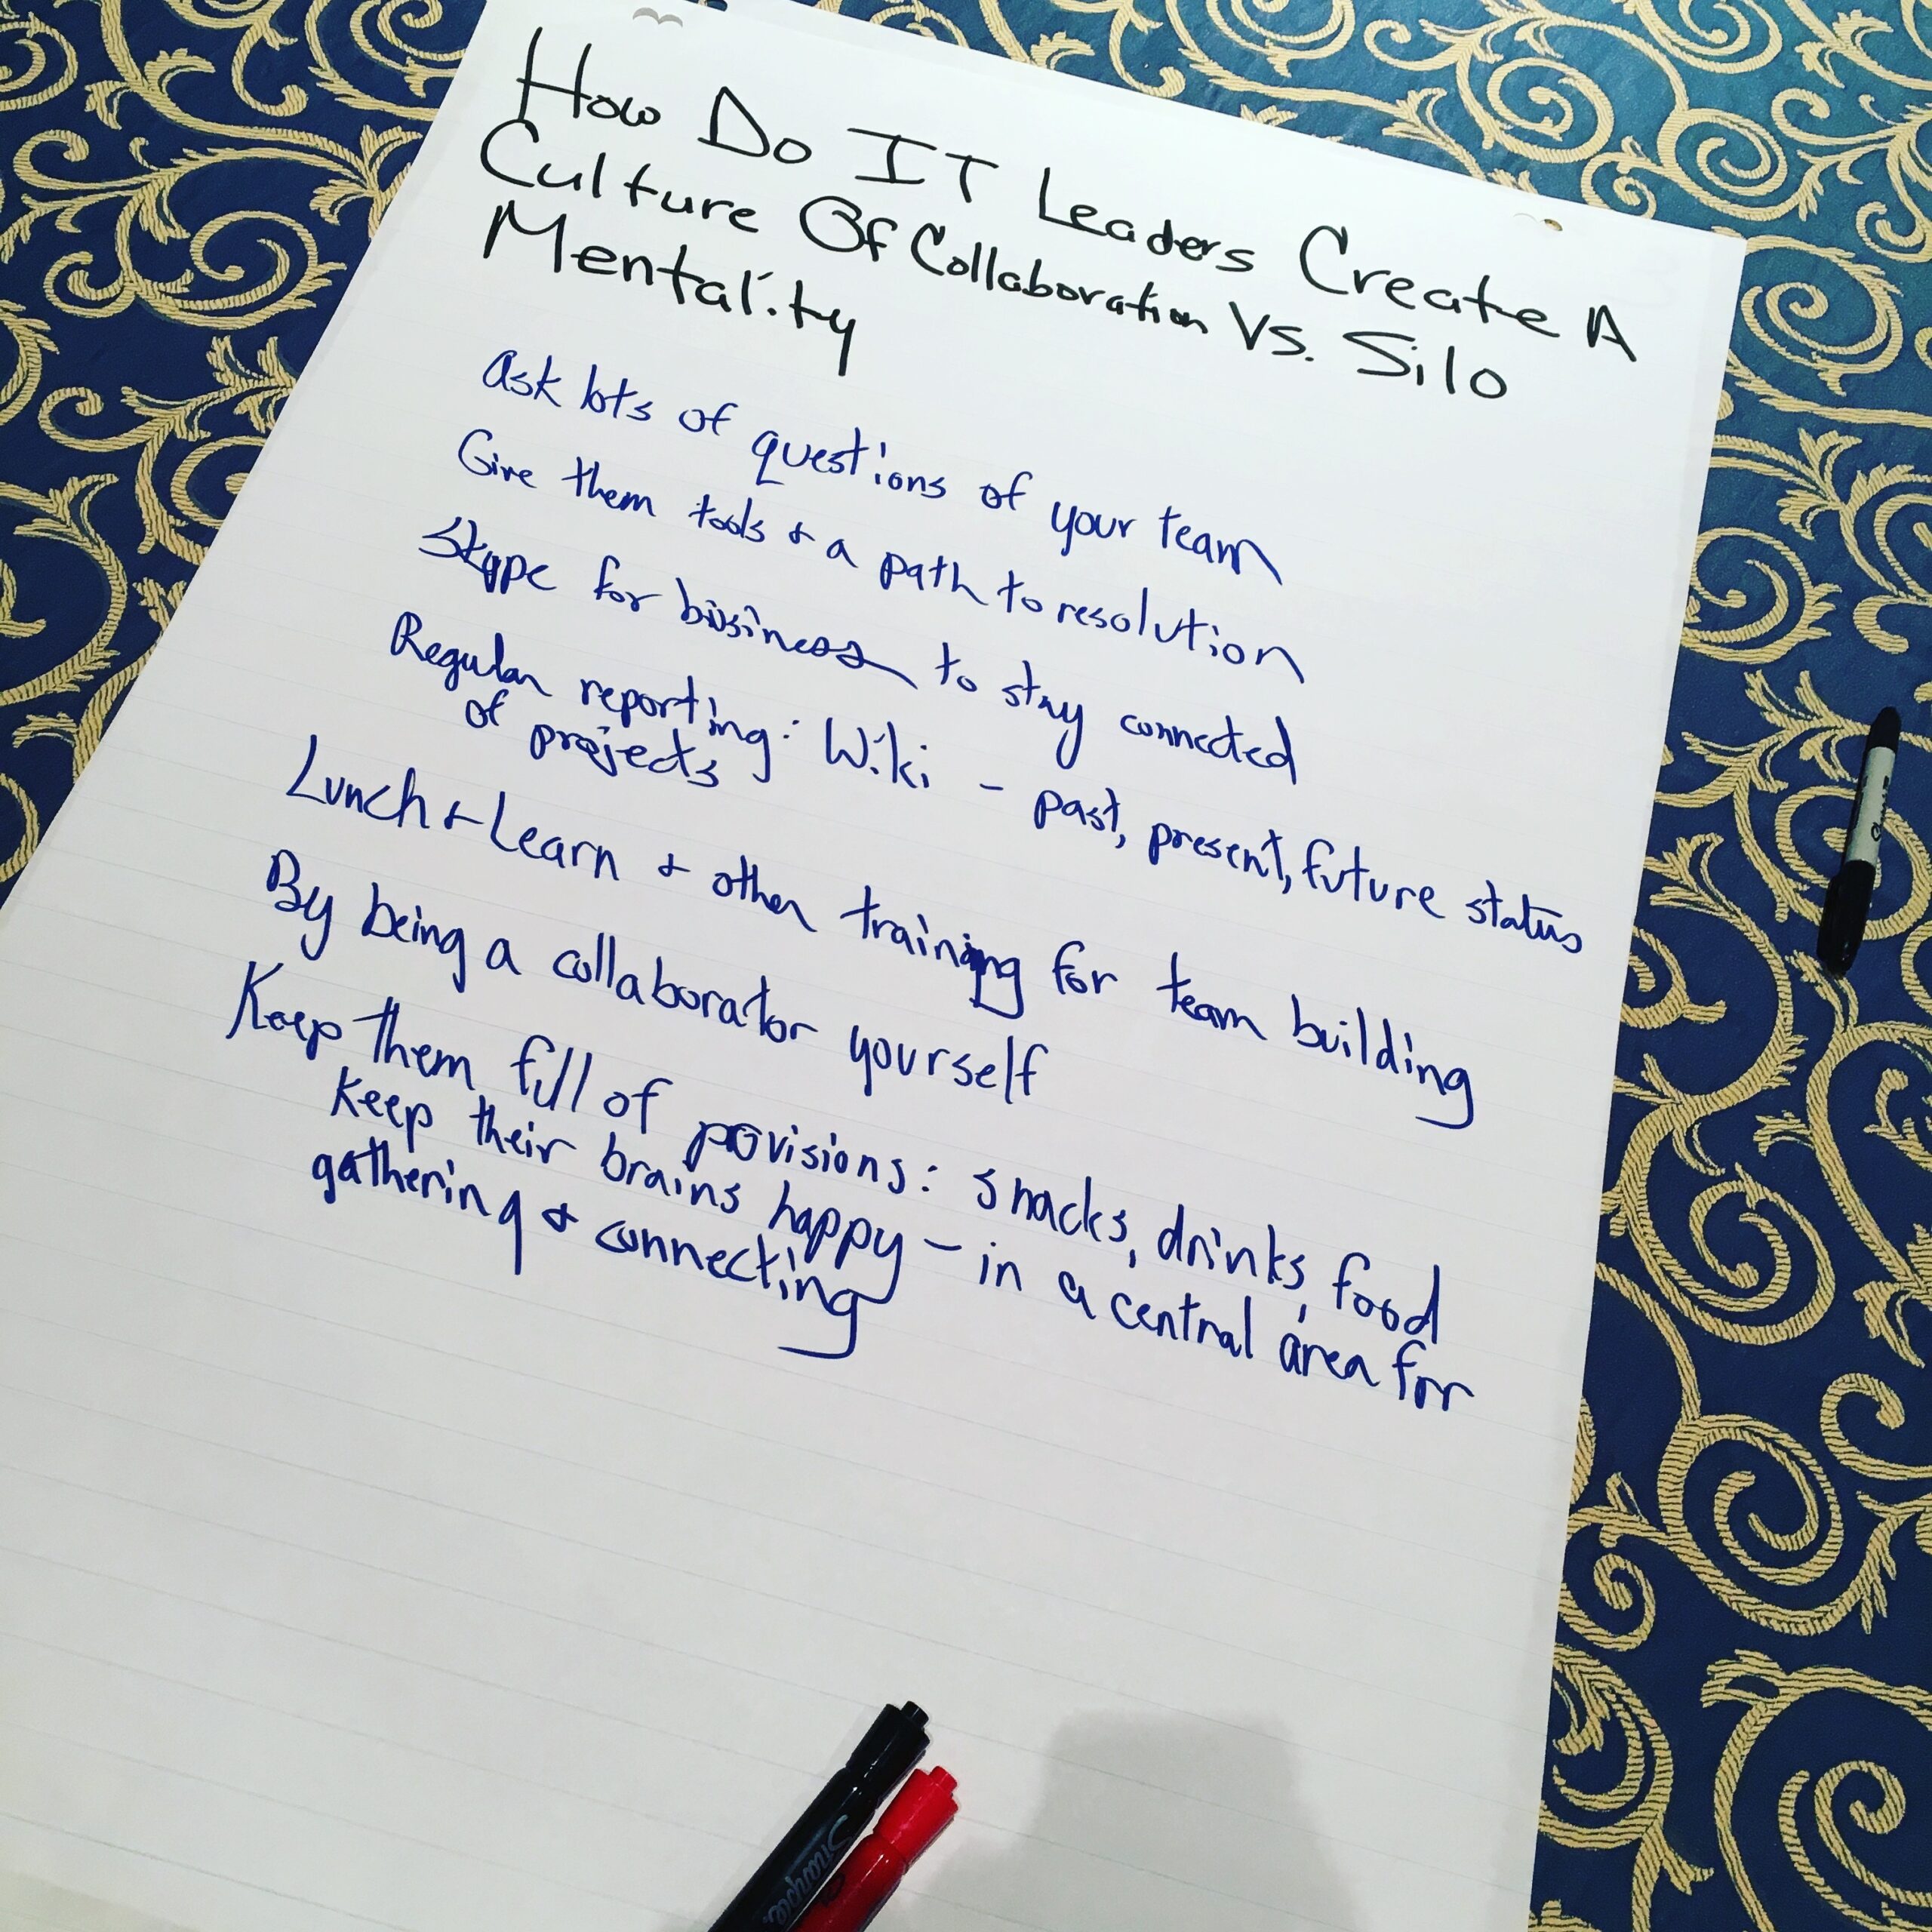 How Do IT Leaders Create A
Culture Of Collaboration Vs. Silo
Mentality
Ask lots of questions of your team
Give them tools & a path to resolution
Skype for business to stay connected
Regular reporting: Wiki - past, present, future status
of projects
Lunch & Learn & other training for team building
By being a collaborator yourself
Keep them full of povisions: snacks, drinks, food
keep their brains happy - in a central area for
gathering & connecting
Sharpie